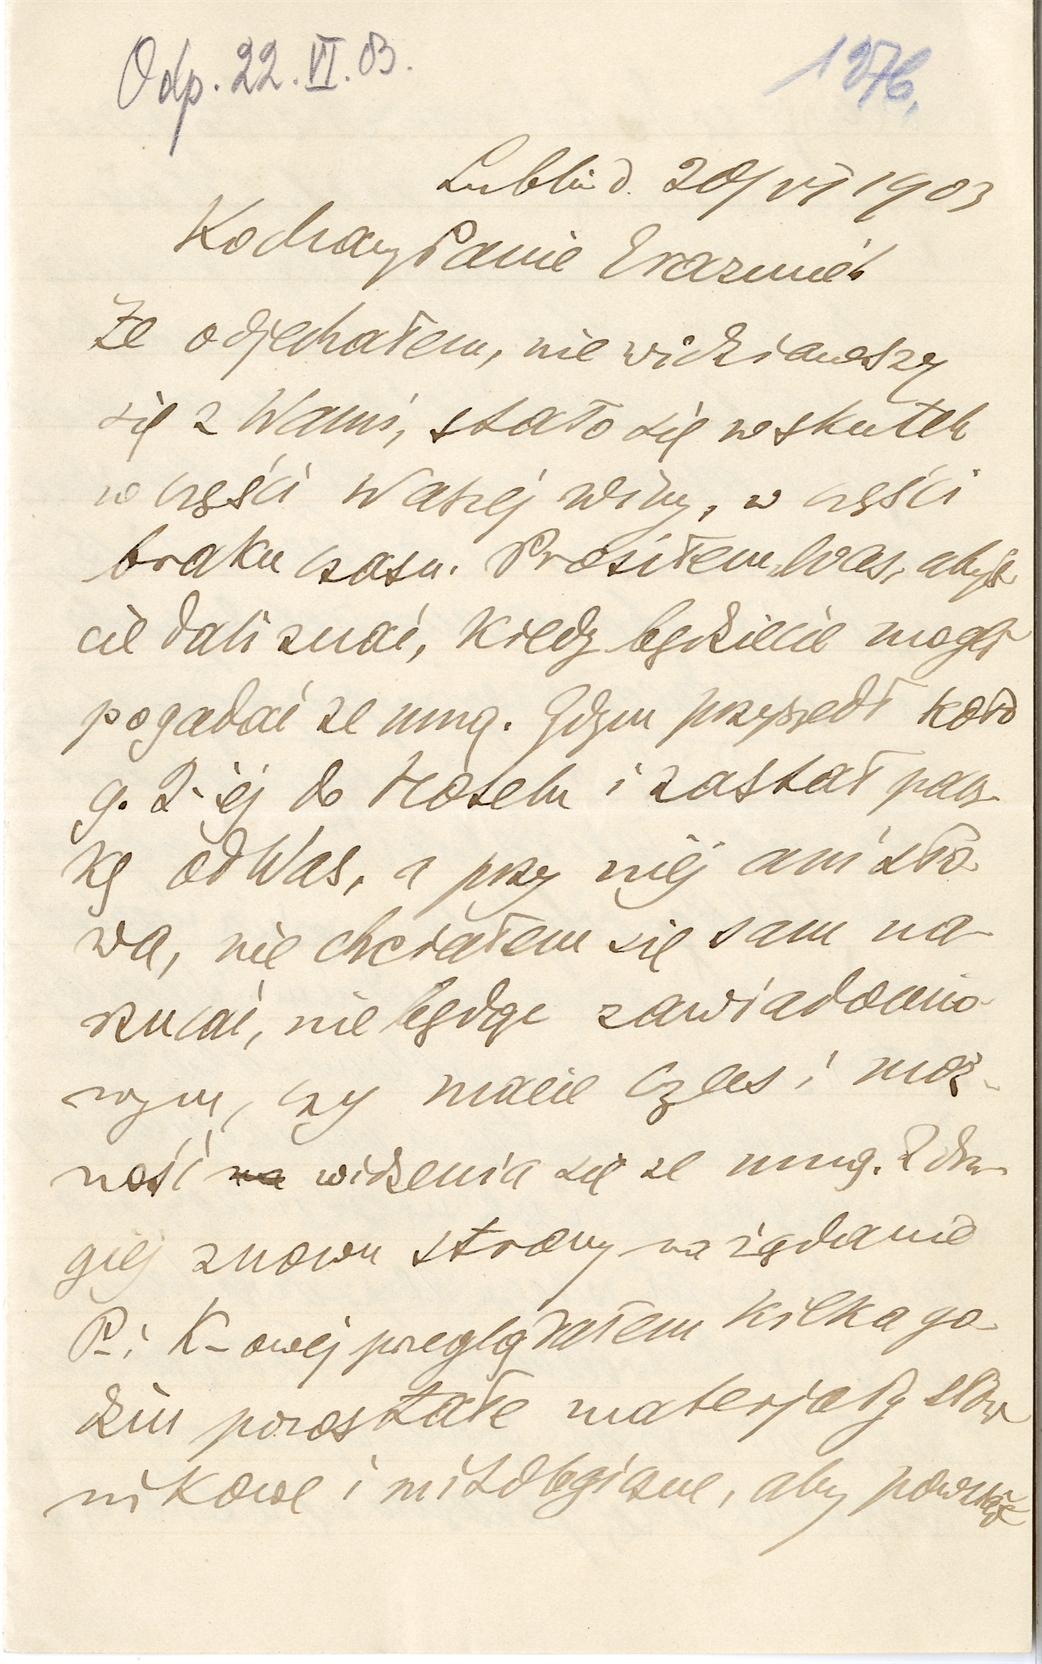 Odp. 22.VI.03.
1276,
Lublin d. 20/VI 1903
Kochany Panie Erazmie!
Że odjechałem, nie widziawszy
się z Wami, stało się wskutek
w części Waszej winy, w części
braku czasu. Prosiłem Was, abyś-
cie dali znać, kiedy będziecie mogli
pogadać ze mną. Gdym przyszedł koło
g. 2-iej do Hotelu i zastał pacz-
kę od Was, a przy niej ani sło-
wa, nie chciałem się sam na-
rzucać, nie będąc zawiadomio-
nym, czy macie czas i moż-
ność na widzenia się ze mną. Z dru-
giej znowu strony na żądanie
P-i K-owej przeglądałem kilka go-
dzin pozostałe materjały słow-
nikowe i mitologiczne, aby